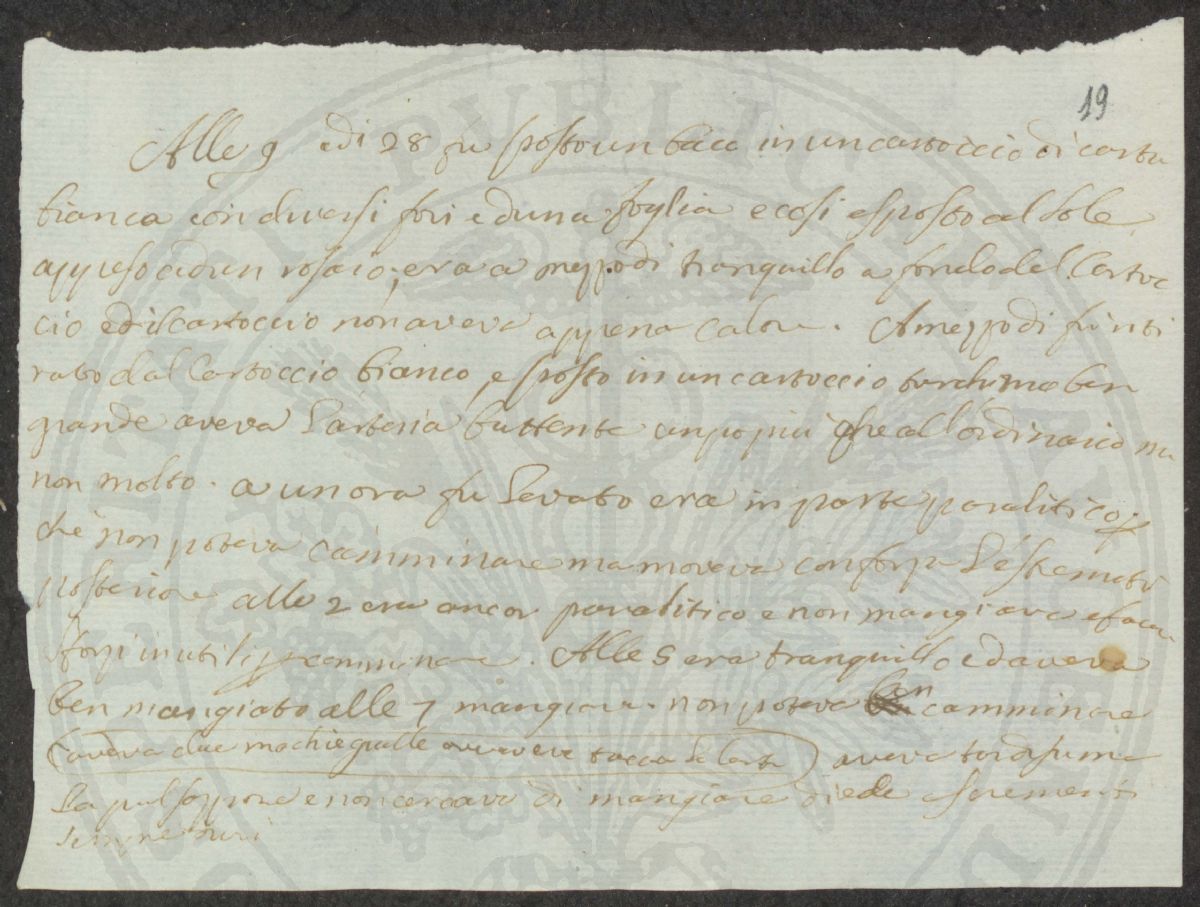 19
Alle 9 edi 28 fu posto un baco in un cartoccio di carta
bianca con diversi fori ed una foglia e cosi esposto al sole
appreso ad un rosaio; era a mezzodi tranquillo a fondo del Cartoc
cio ed il cartoccio non aveva appena calore. A mezzodi fu riti
rato dal Cartoccio bianco, e posto in un cartoccio turchino ben
grande aveva l'arteria buttente un po piu che all'ordinario ma
non molto. a un ora fu levato era in parte paralitico p
che non poteva camminare ma moveva con forza l'estremità
posteriore alle 2 era ancor paralitico e non mangiava e facea
sforzi inutili p camminare. Alle 5 era tranquillo ed aveva
ben mangiato alle 7 mangiava. non poteva ben camminare
(aveva due machie gialle ove aveva tocca la carta) aveva tardissima
la pulsazione e non cercava di mangiare diede escrementi
sempre duri
PUBLICAE